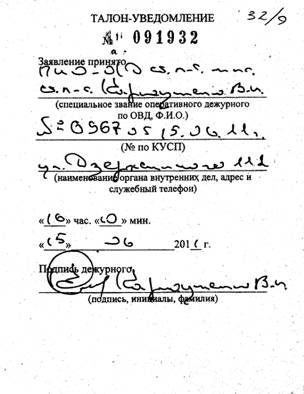 32/9
ТАЛОН-УВЕДОМЛЕНИЕ
№ 091932
Заявление принято
(специальное звание оперативного дежурного
по ОВД, Ф.И.О.)
№ 8967 от 15.06.11г.
(№ по КУСП)
ул. Дзержинского 111
(наименование органа внутренних дел, адрес и
служебный телефон)
«16» час. «00» мин.
«15» 06 2011 г.
Подпись дежурного
(подпись, инициалы, фамилия)